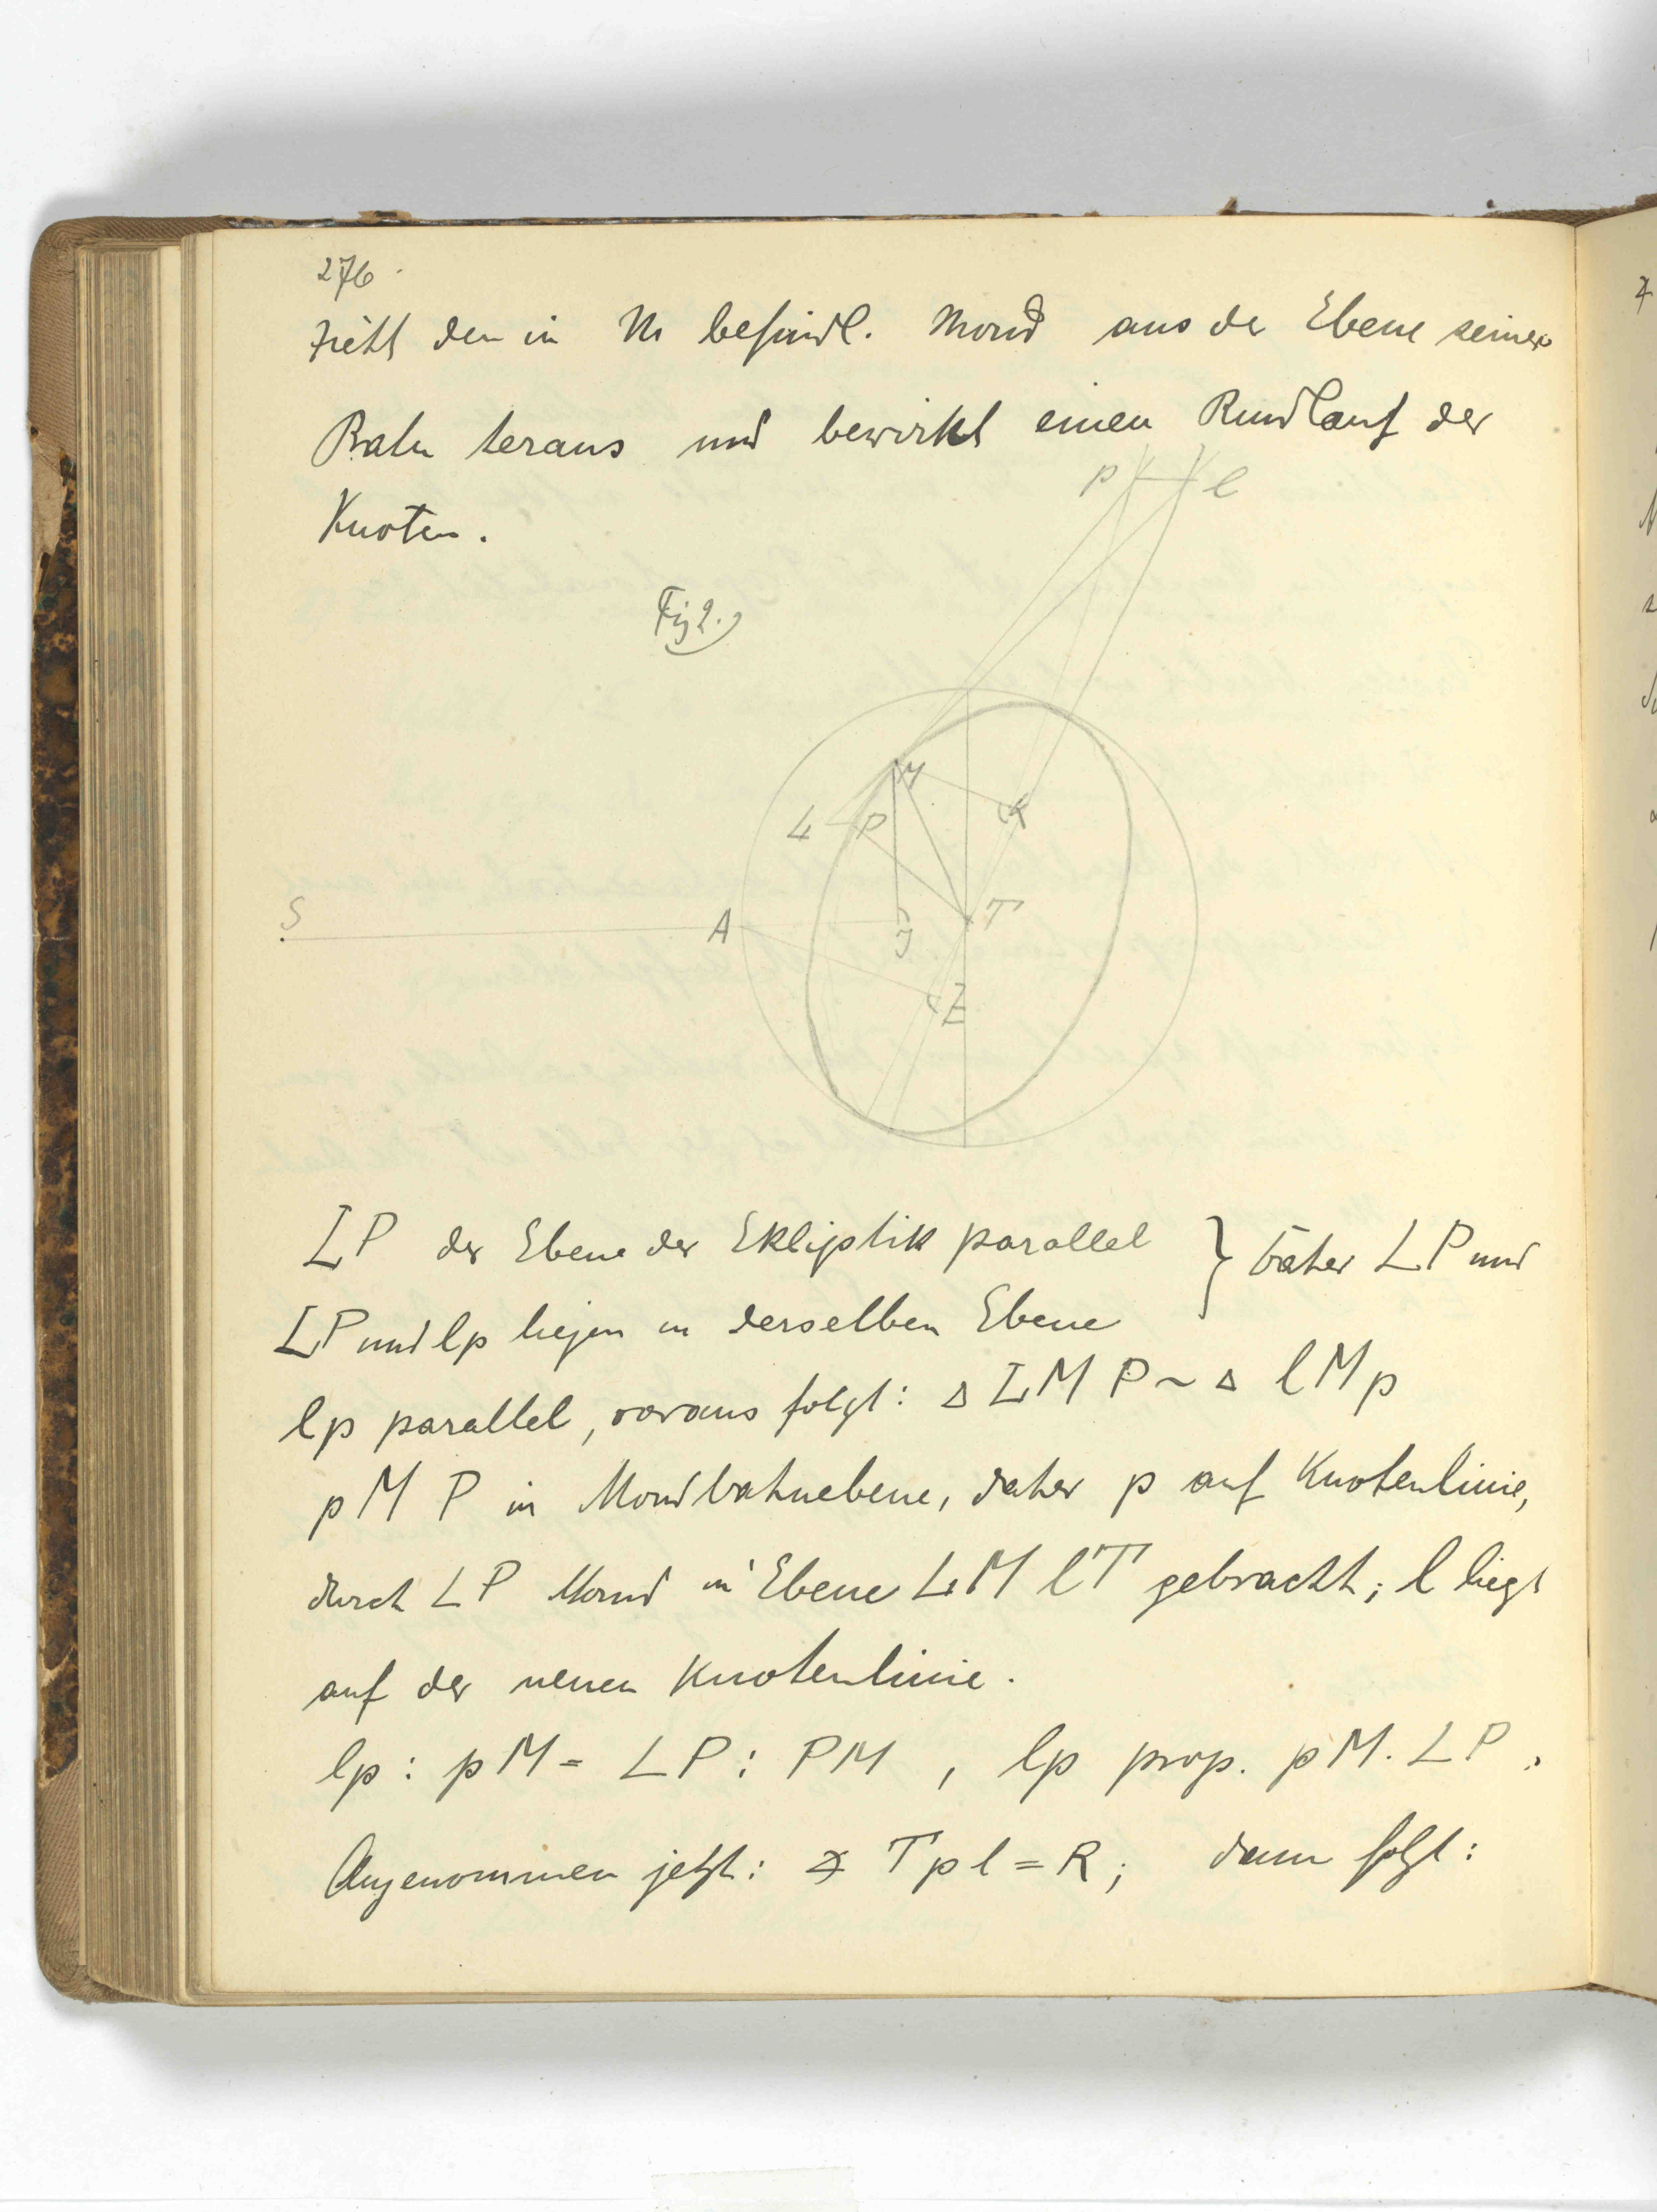 276.
zieht den in M befindl. Mond aus der Ebene seiner
Bahn heraus und bewirkt einen Rundlauf der
Knoten.
p l
Fig 2.)
M
L P K
S A J T
Z
LP der Ebene der Ekliptik parallel } daher LP und
LP und lp liegen in derselben Ebene
lp parallel, woraus folgt: ▵ LMP ~ ▵ lMp
pMP in Mondbahnebene, daher p auf Knotenlinie,
durch LP Mond in Ebene LMlT gebracht; l liegt
auf der neuen Knotenlinie.
lp : pM = LP : PM , lp prop. pM. LP.
Angenommen jetzt: ∢ Tpl = R; dann folgt: